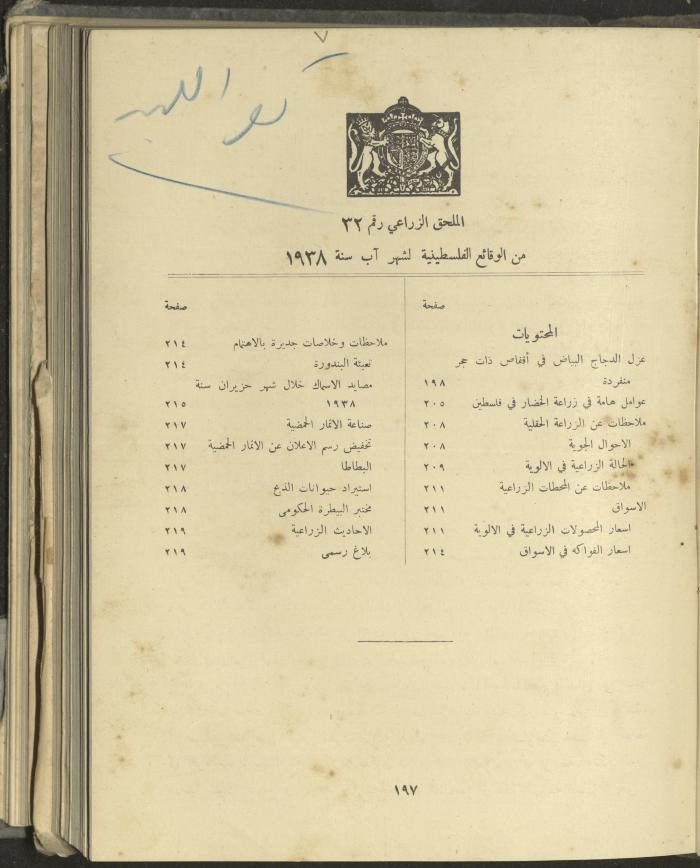 الملحق الزراعي رقم ٣٢
من الوقائع الفلسطينية لشهر آب سنة ١٩٣٨
صفحة
المحتويات
عزل الدجاج البياض في أقفاص ذات حجر
منفردة ١٩٨
عوامل هامة في زراعة الخضار في فلسطين ٢٠٥
ملاحظات عن الزراعة الحقلية ٢٠٨
الاحوال الجوية ٢٠٨
الحالة الزراعية في الالوية ٢٠٩
ملاحظات عن المحطات الزراعية ٢١١
الاسواق ٢١١
اسعار المحصولات الزراعية في الالوية ٢١١
اسعار الفواكه في الاسواق ٢١٤
صفحة
ملاحظات وخلاصات جديرة بالاهتمام ٢١٤
تعبئة البندورة ٢١٤
مصايد الاسماك خلال شهر حزيران سنة
١٩٣٨ ٢١٥
صناعة الاثمار الحمضية ٢١٧
تخفيض رسم الاعلان عن الاثمار الحمضية ٢١٧
البطاطا ٢١٧
استيراد حيوانات الذبح ٢١٨
مختبر البيطرة الحكومي ٢١٨
الاحاديث الزراعية ٢١٩
بلاغ رسمي ٢١٩
١٩٧